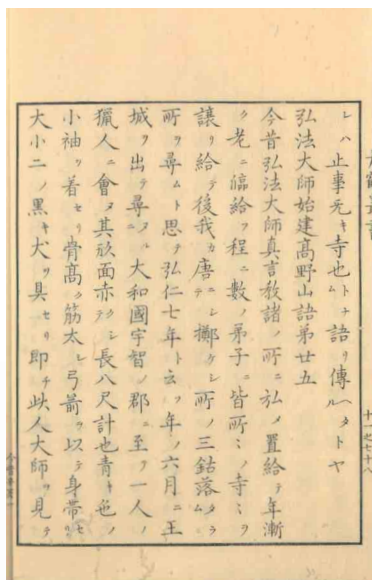 レハ止事旡キ寺也トナム語リ傳ヘタルトヤ
弘法大師始建髙野山語苐廿五
今昔弘法大師真言敎諸ノ所ニ弘メ置給テ年漸
ク老ニ臨給フ程ニ數ノ弟子ニ皆所ミノ寺ミヲ
讓リ給テ後我カ唐ニテ擲ケシ所ノ三鈷落タラム
所ヲ尋ムト思テ弘仁七年ト云フ年ノ六月ニ王
城ヲ出テ尋ヌルニ大和國宇智ノ郡ニ至テ一人ノ
獵人ニ會ヌ其形面赤クシテ長八尺計也青キ色ノ
小袖ヲ着セリ骨髙ク筋太シ弓箭ヲ以テ身帶セリ
大小二ノ黒キ犬ヲ具セリ即チ此人大師ヲ見テ
十一之七十八